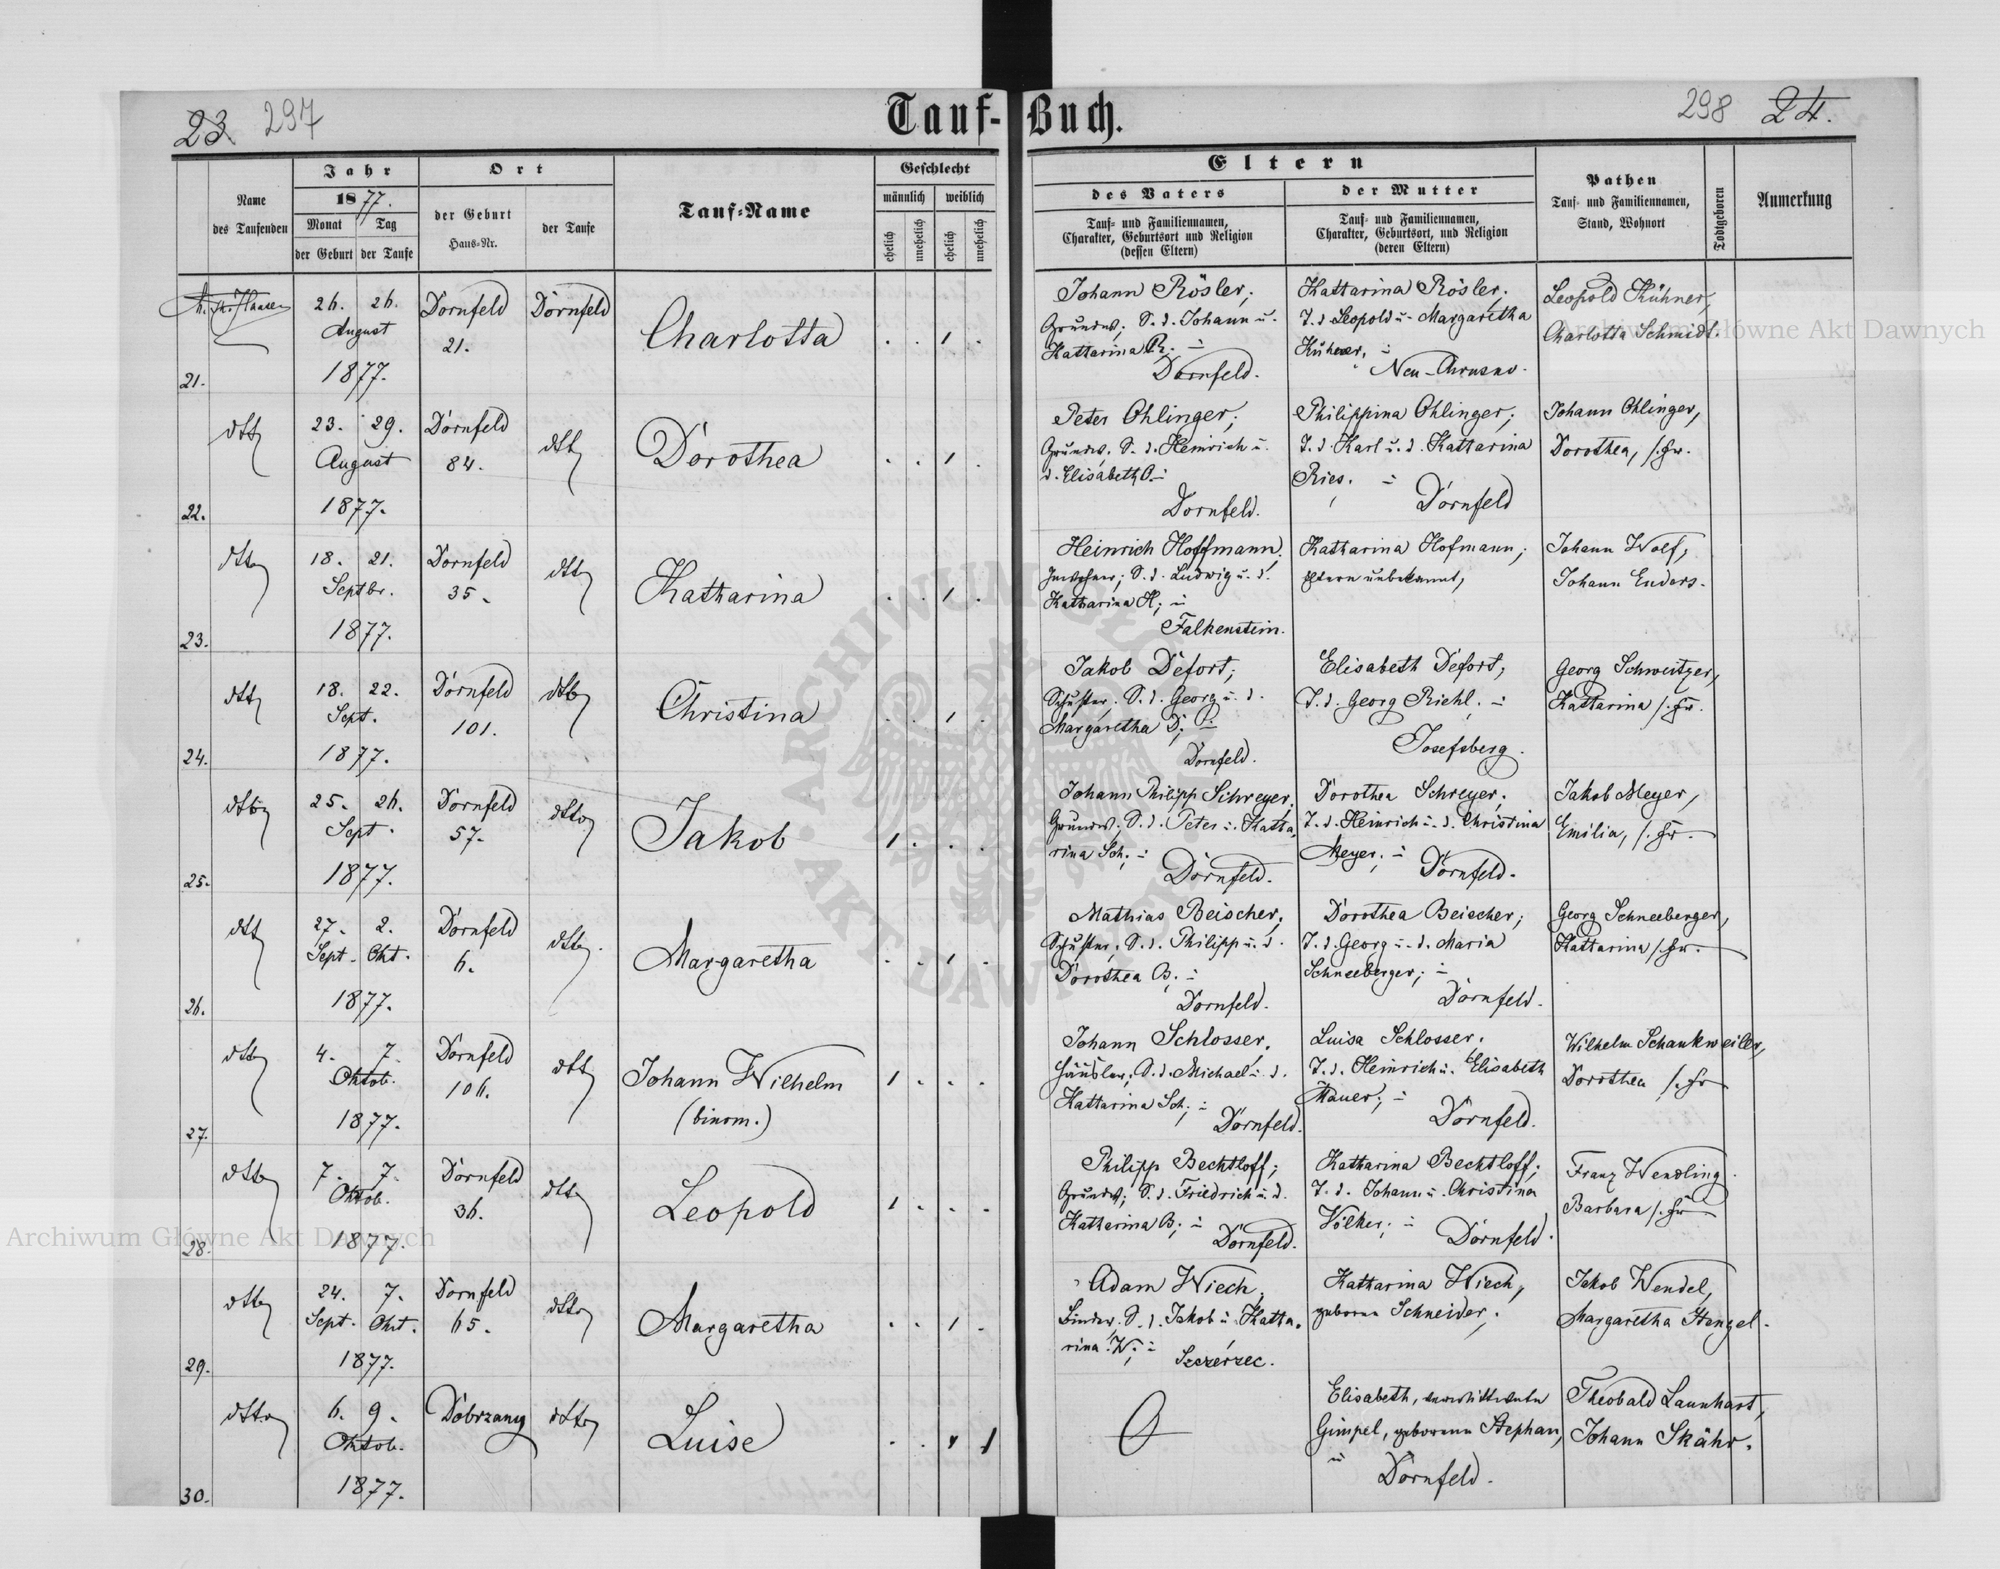 23. 297
Tauf-Buch.
298 24.
Name
des Taufenden
Jahr
1877.
Monat Tag
der Geburt der Taufe
Ort
der Geburt
Haus-Nr.
der Taufe
Tauf-Name
Geschlecht
männlich weiblich
ehelich unehelich ehelich unehelich
Eltern
des Vaters
Tauf- und Familiennamen,
Charakter, Geburtsort und Religion
(dessen Eltern)
der Mutter
Tauf- und Familiennamen,
Charakter, Geburtsort, und Religion
(deren Eltern)
Pathen
Tauf- und Familiennamen,
Stand, Wohnort
Todtgeboren
Anmerkung
21.
26. 26.
August
1877.
Dornfeld
21.
Dornfeld
Charlotta
Johann Rösler;
Grundw; S. d. Johann u.
Kattarina R. -
Dornfeld.
Kattarina Rösler;
T. d. Leopold u. Margaretha
Kühner. -
Neu-Chrusno.
Leopold Kühner,
Charlotta Schmidt.
22.
dtto
23. 29.
August
1877.
Dornfeld
84.
dtto
Dorothea
Peter Ohlinger;
Grundw. S. d. Heinrich u.
d. Elisabeth O. -
Dornfeld.
Philippina Ohlinger;
T. d. Karl u. d. Kattarina
Ries. -
Dornfeld
Johann Ohlinger,
Dorothea, s. Fr.
23.
dtto
18. 21.
Septbr.
1877.
Dornfeld
35.
dtto
Katharina
Heinrich Hoffmann,
Inwohner; S. d. Ludwig u. d.
Katharina H; -
Falkenstein.
Katharina Hofmann;
Eltern unbekannt,
Johann Wolf,
Johann Enders.
24.
dtto
18. 22.
Sept.
1877.
Dornfeld
101.
dtto
Christina
Jakob Defort;
Schuster. S. d. Georg u. d.
Margaretha D; -
Dornfeld.
Elisabeth Defort;
T. d. Georg Riehl. -
Josefsberg.
Georg Schweitzer,
Kattarina s. Fr.
25.
dtto
25. 26.
Sept.
1877.
Dornfeld
57.
dtto
Jakob
Johann Philipp Schreyer,
Grundw; S. d. Peter u. Katta-
rina Sch; -
Dornfeld.
Dorothea Schreyer;
T. d. Heinrich u. d. Christina
Meyer; -
Dornfeld.
Jakob Meyer,
Emilia, s. Fr.
26.
dtto
27. 2.
Sept. Okt.
1877.
Dornfeld
6.
dtto
Margaretha
Mathias Beischer;
Schuster; S. d. Philipp u. d.
Dorothea B; -
Dornfeld.
Dorothea Beischer;
T. d. Georg u. d. Maria
Schneeberger; -
Dornfeld.
Georg Schneeberger,
Kattarina s. Fr.
27.
dtto
4. 7.
Oktob.
1877.
Dornfeld
106.
dtto
Johann Wilhelm
(binom.)
Johann Schlosser,
Häusler; S. d. Michael u. d.
Kattarina Sch; -
Dornfeld.
Luisa Schlosser;
T. d. Heinrich u. Elisabeth
Mauer; -
Dornfeld.
Wilhelm Schankweiler,
Dorothea s. Fr
28.
dtto
7. 7.
Oktob.
1877.
Dornfeld
36.
dtto
Leopold
Philipp Bechtloff;
Grundw; S. d. Friedrich u. d.
Katharina B; -
Dornfeld.
Katharina Bechtloff;
T. d. Johann u. Christina
Völker; -
Dornfeld.
Franz Wendling.
Barbara s. Fr
29.
dtto
24. 7.
Sept. Okt.
1877.
Dornfeld
65.
dtto
Margaretha
Adam Wiech,
Binder. S. d. Jakob u. Katta-
rina W; -
Szczerzec.
Katharina Wiech,
geborene Schneider;
Jakob Wendel,
Margaretha Stengel.
30.
dtto
6. 9.
Oktob.
1877.
Dobrzany
dtto
Luise
Elisabeth, verwittwete
Gimpel, geborene Stephan,
Dornfeld.
Theobald Launhart,
Johann Skähr.
Archiwum Główne Akt Dawnych
Archiwum Główne Akt Dawnych